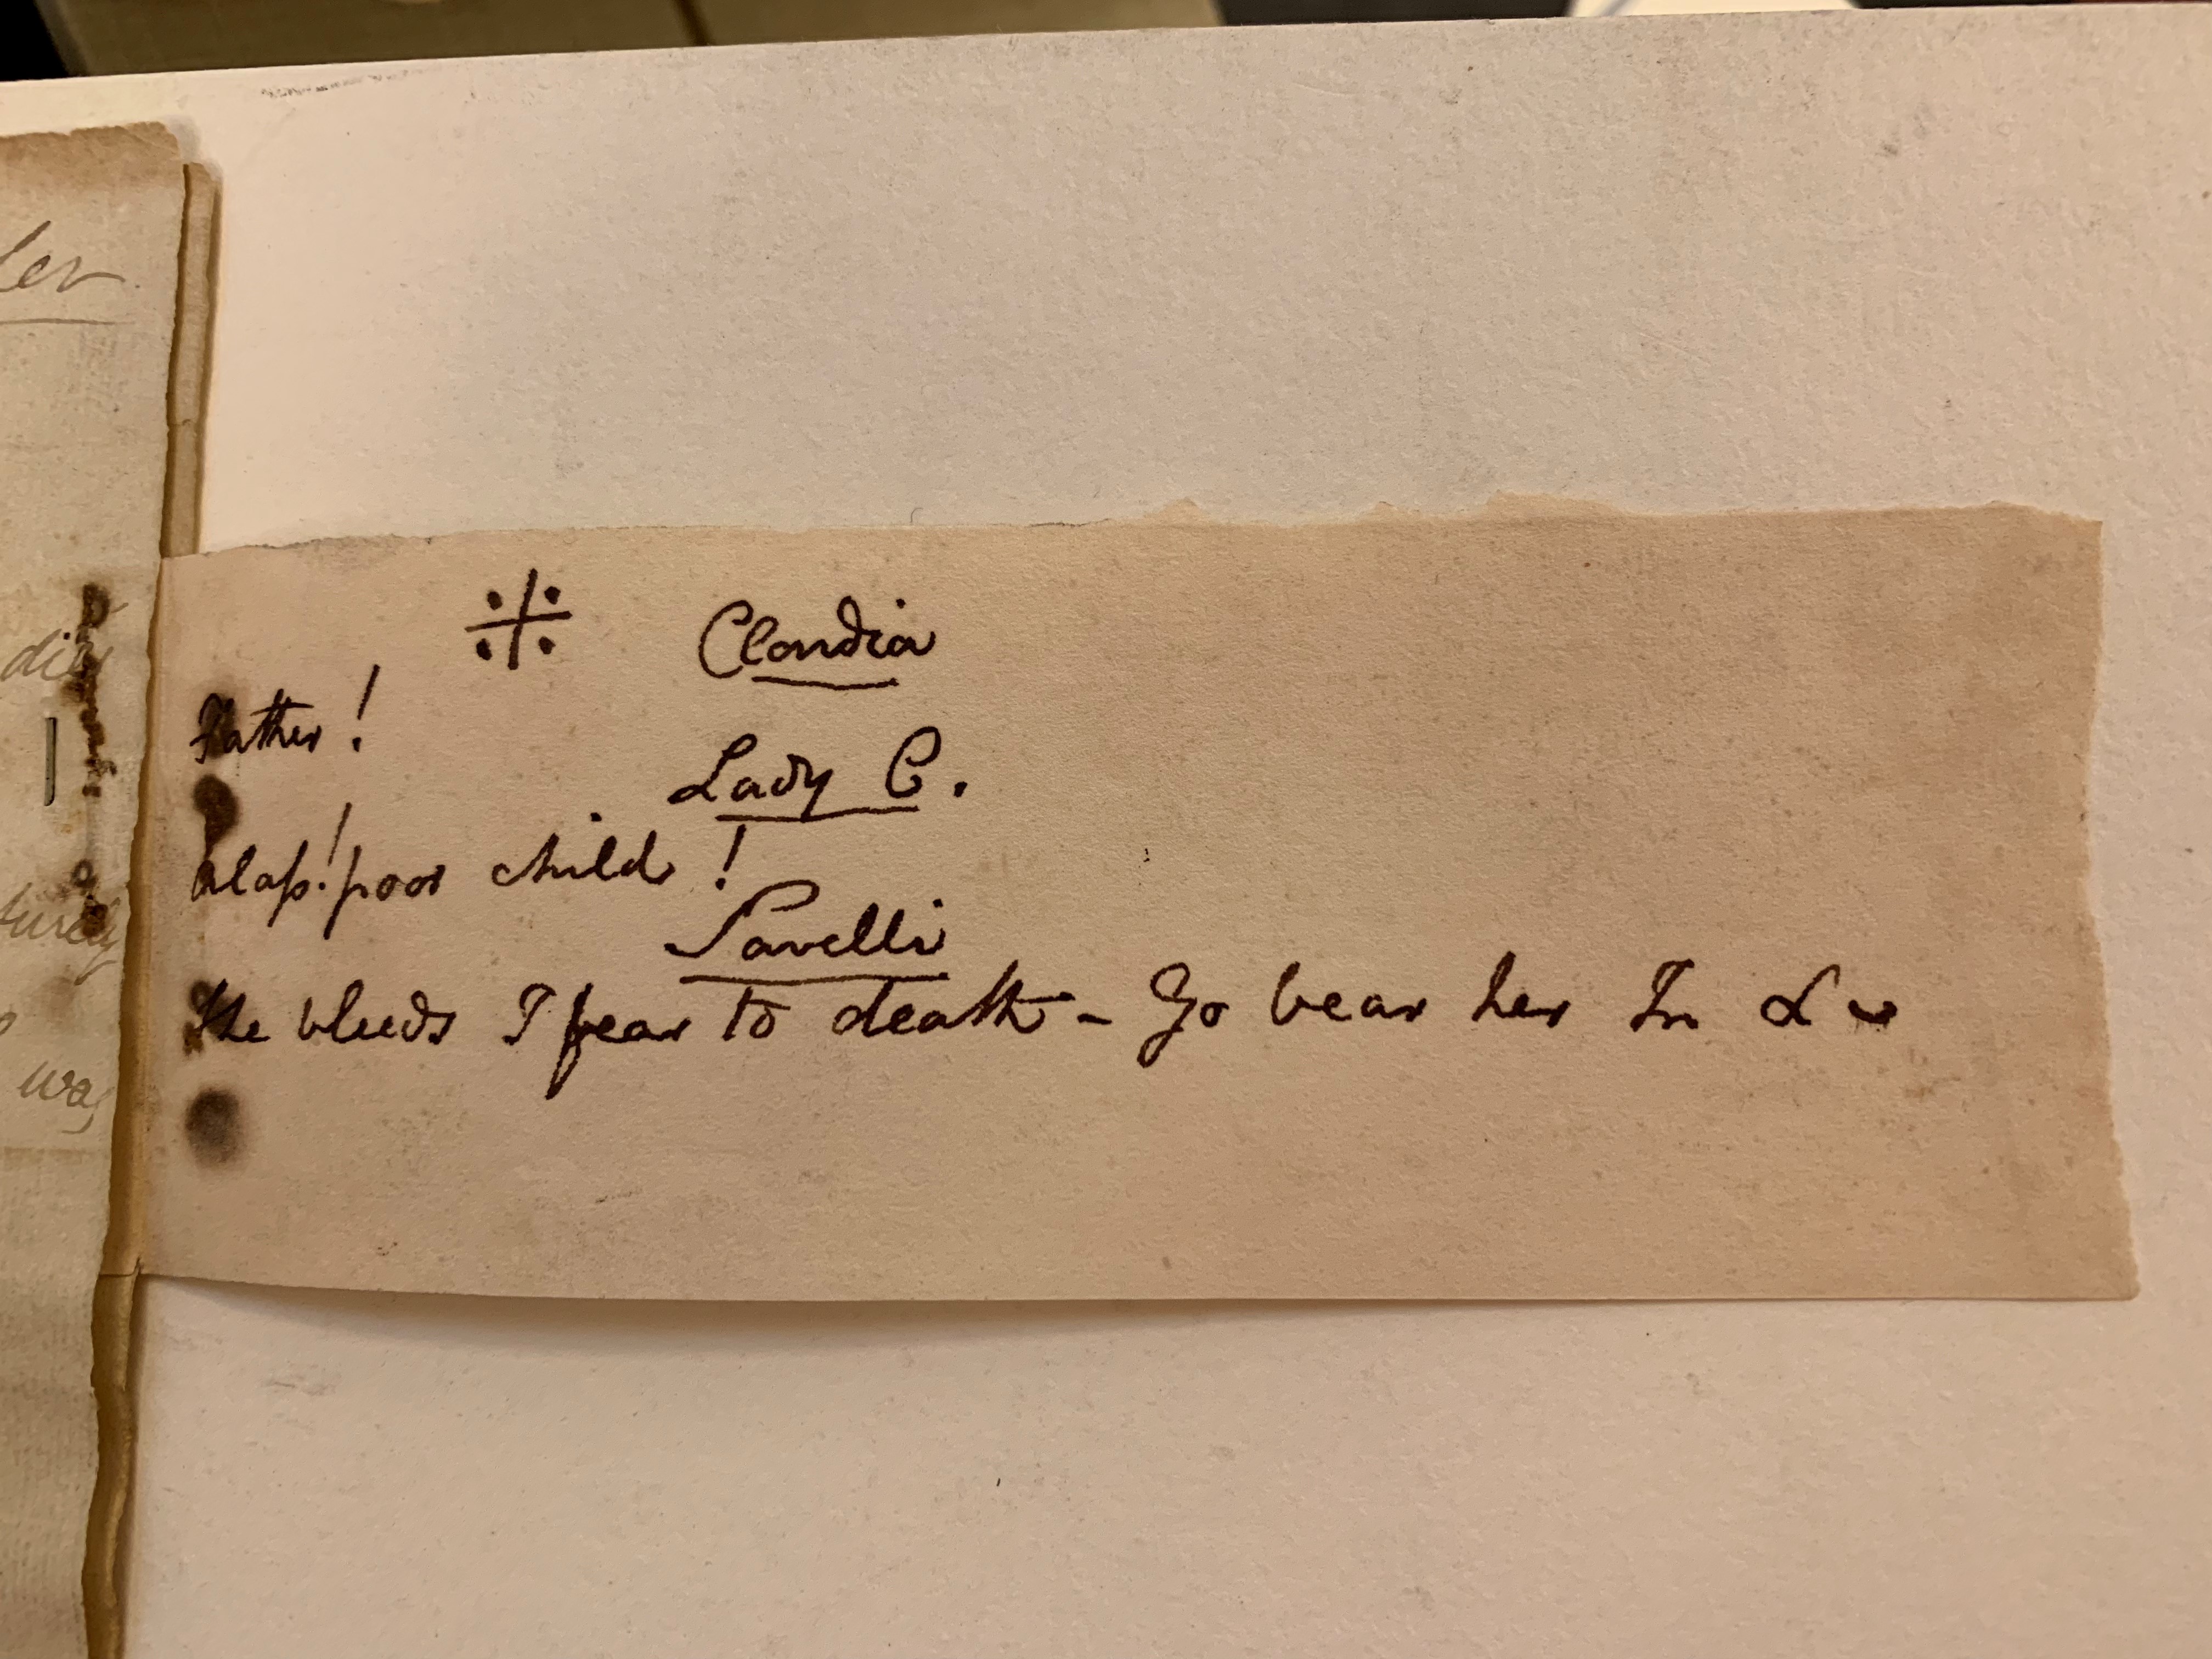 ※ Claudia
Father!
Lady C.
Alas! poor child!
Savelli
She bleeds I fear to death - Go bear her In &c
ler